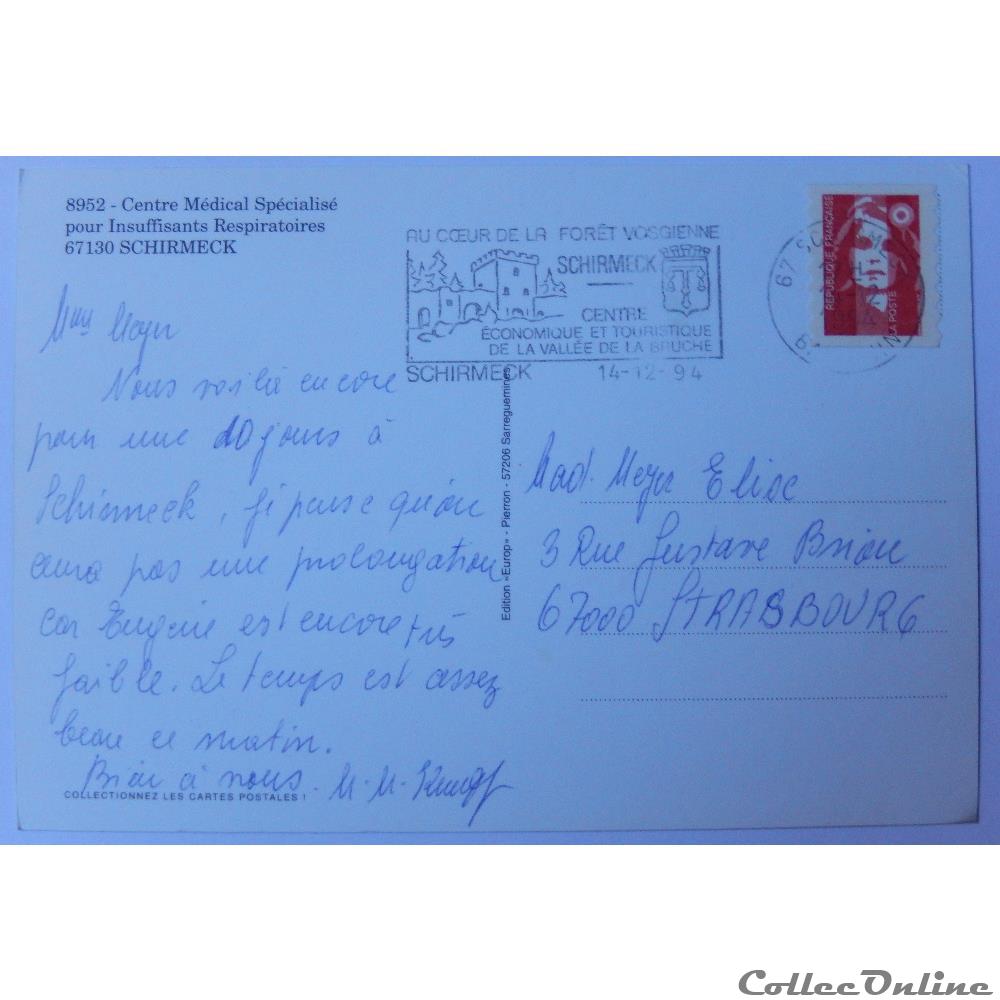 8952 - Centre Médical Spécialisé
pour Insuffisants Respiratoires
67130 SCHIRMECK
AU CŒUR DE LA FORÊT VOSGIENNE
SCHIRMECK
CENTRE
ÉCONOMIQUE ET TOURISTIQUE
DE LA VALLÉE DE LA BRUCHE
SCHIRMECK 14-12-94
REPUBLIQUE FRANÇAISE
LA POSTE
Meyer
Nous voilà encore
pour une 10 jours à
Schirmeck, je pense qu'on
aura pas une prolongation
car Eugène est encore très
faible. Le temps est assez
beau ce matin.
Bien à nous. M-M-Kempf
COLLECTIONNEZ LES CARTES POSTALES !
Edition «Europ» - Pierron - 57206 Sarreguemines
Mad. Meyer Elise
3 Rue Gustave Brion
67000 STRASBOURG
CollecOnline